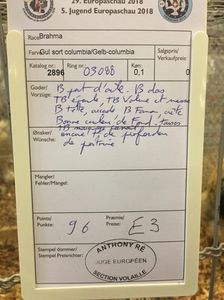 29. Europaschau 2018
5. Jugend Europaschau 2018
Race/
Rasse: Brahma
Farve/
Farbe: Gul sort columbia/Gelb-columbia
Salgspris/
Verkaufspreis
Katalog nr.: 2896
Ring 03088
Køn: 0,1
0
Goder/
Vorzüge:
B port d'aile. B dos
TB épaule, TB Volume et masse
B tête, arcade B
Bonne couleur de Fond, tarses
Ønsker/
Wünsche:
encore + de profondeur
de poitrine
Mangler/
Fehler/Mangel:
Points/
Punkte: 96
Præmie/
Preise: E3
Stempel dommer/
Stempel Preisrichter:
ANTHONY RÉ
JUGE EUROPÉEN
SECTION VOLAILLE